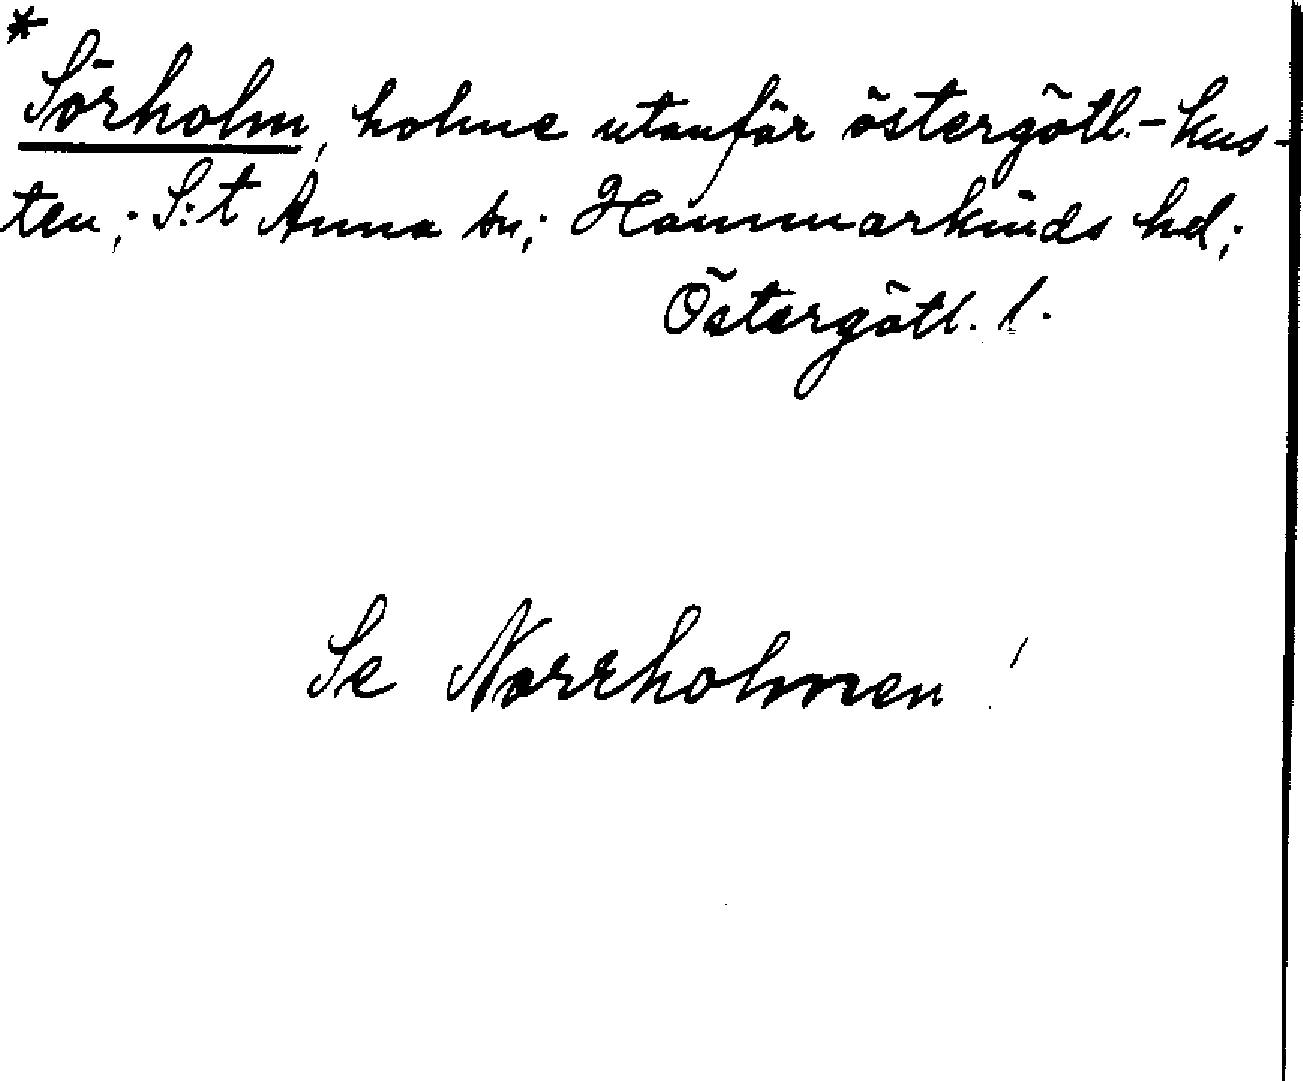 *
Sörholm, holme utanför östergötl.-kus-
ten; S:t Anna sn; Hammarkinds hd;
Östergötl. l.
Se Norrholmen!